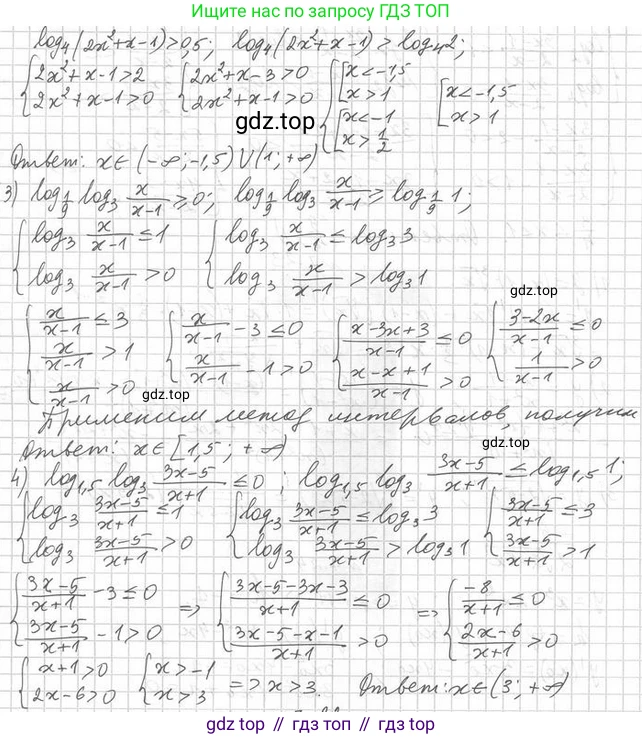 Ищите нас по запросу ГДЗ ТОП
log₄(2x²+x-1)>0,5; log₄(2x²+x-1)>log₄2;
{2x²+x-1>2 {2x²+x-3>0 {[x<-1,5 [x<-1,5
{2x²+x-1>0 {2x²+x-1>0 {[x>1 [x>1
{[x<-1
{[x>1/2
gdz.top
Ответ: x∈(-∞;-1,5)∪(1;+∞)
3) log_{1/9} log₃ x/(x-1) ≥ 0; log_{1/9} log₃ x/(x-1) ≥ log_{1/9} 1;
{log₃ x/(x-1) ≤ 1 {log₃ x/(x-1) ≤ log₃3
{log₃ x/(x-1) > 0 {log₃ x/(x-1) > log₃1
gdz.top
{x/(x-1) ≤ 3 {x/(x-1) - 3 ≤ 0 {(x-3x+3)/(x-1) ≤ 0 {(3-2x)/(x-1) ≤ 0
{x/(x-1) > 1 {x/(x-1) - 1 > 0 {(x-x+1)/(x-1) > 0 {1/(x-1) > 0
{x/(x-1) > 0
gdz.top
Применим метод интервалов, получим
Ответ: x∈[1,5; +∞)
4) log₁,₅ log₃ (3x-5)/(x+1) ≤ 0; log₁,₅ log₃ (3x-5)/(x+1) ≤ log₁,₅ 1;
{log₃ (3x-5)/(x+1) ≤ 1 {log₃ (3x-5)/(x+1) ≤ log₃3 {(3x-5)/(x+1) ≤ 3
{log₃ (3x-5)/(x+1) > 0 {log₃ (3x-5)/(x+1) > log₃1 {(3x-5)/(x+1) > 1
{(3x-5)/(x+1) - 3 ≤ 0 => {(3x-5-3x-3)/(x+1) ≤ 0 => {-8/(x+1) ≤ 0
{(3x-5)/(x+1) - 1 > 0 {(3x-5-x-1)/(x+1) > 0 {(2x-6)/(x+1) > 0
{x+1>0 {x>-1 => x>3. Ответ: x∈(3; +∞)
{2x-6>0 {x>3
gdz top // гдз топ // gdz.top // гдз топ // gdz.top